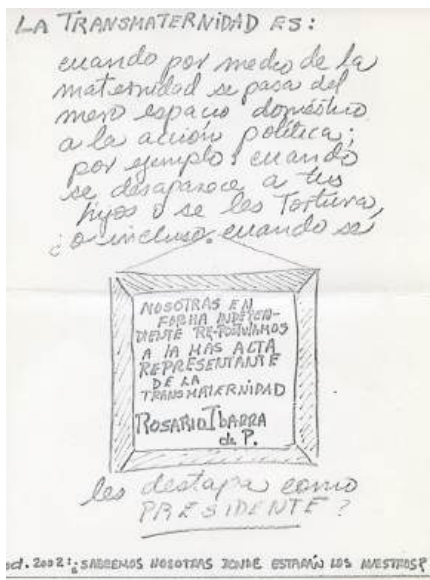 LA TRANSMATERNIDAD ES:
cuando por medio de la
maternidad se pasa del
mero espacio doméstico
a la acción política;
por ejemplo: cuando
se desaparece a tus
hijos o se les Tortura,
¿o incluso cuando se
NOSOTRAS EN
FORMA INDEPEN-
DIENTE RE-POSTULAMOS
A LA MAS ACTA
REPRESENTANTE
DE LA
TRANSMATERNIDAD
ROSARIO IBARRA
de P.
les destapa como
PRESIDENTE?
od. 2002: ¿SABREMOS NOSOTRAS DONDE ESTARÁN LOS NUESTROS?